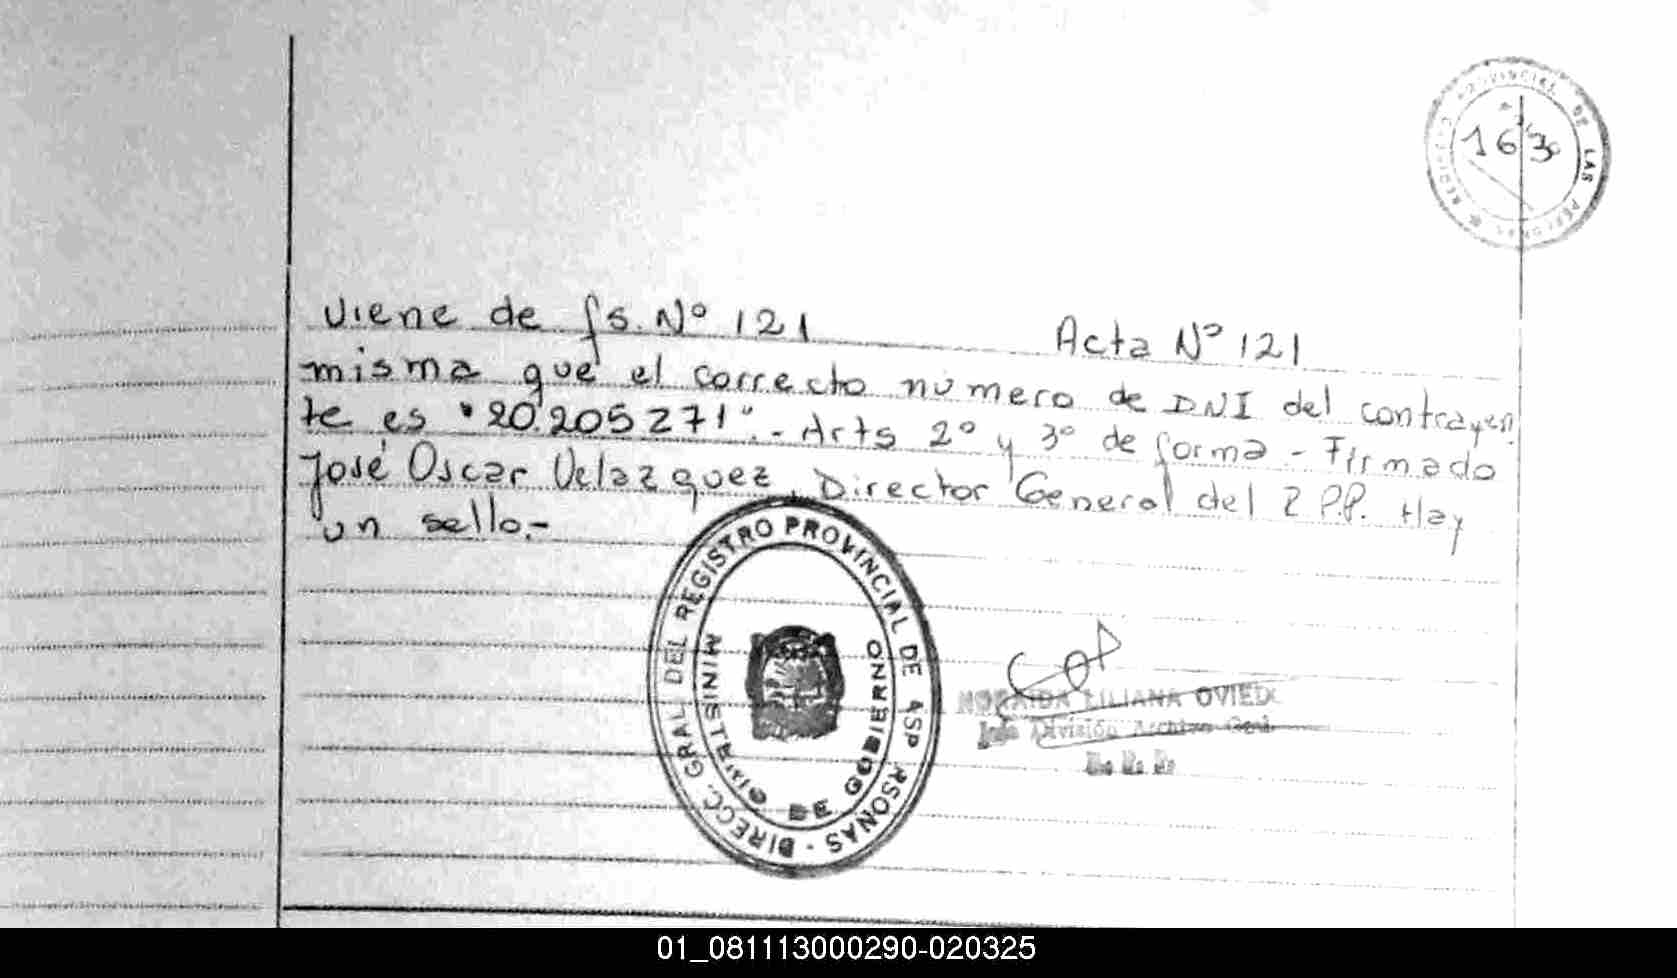 REGISTRO PROVINCIAL DE LAS PERSONAS
163
Viene de fs. Nº 121 Acta Nº 121
misma que el correcto número de DNI del contrayen
te es "20.205271".- Arts 2º y 3º de forma - Firmado
José Oscar Velazquez, Director General del R.P.P. Hay
un sello.-
DIRECC. GRAL DEL REGISTRO PROVINCIAL DE
RSONAS
MINISTERIO DE GOBIERNO
LILIANA OVIED
División Archivo Gral.
01_081113000290-020325